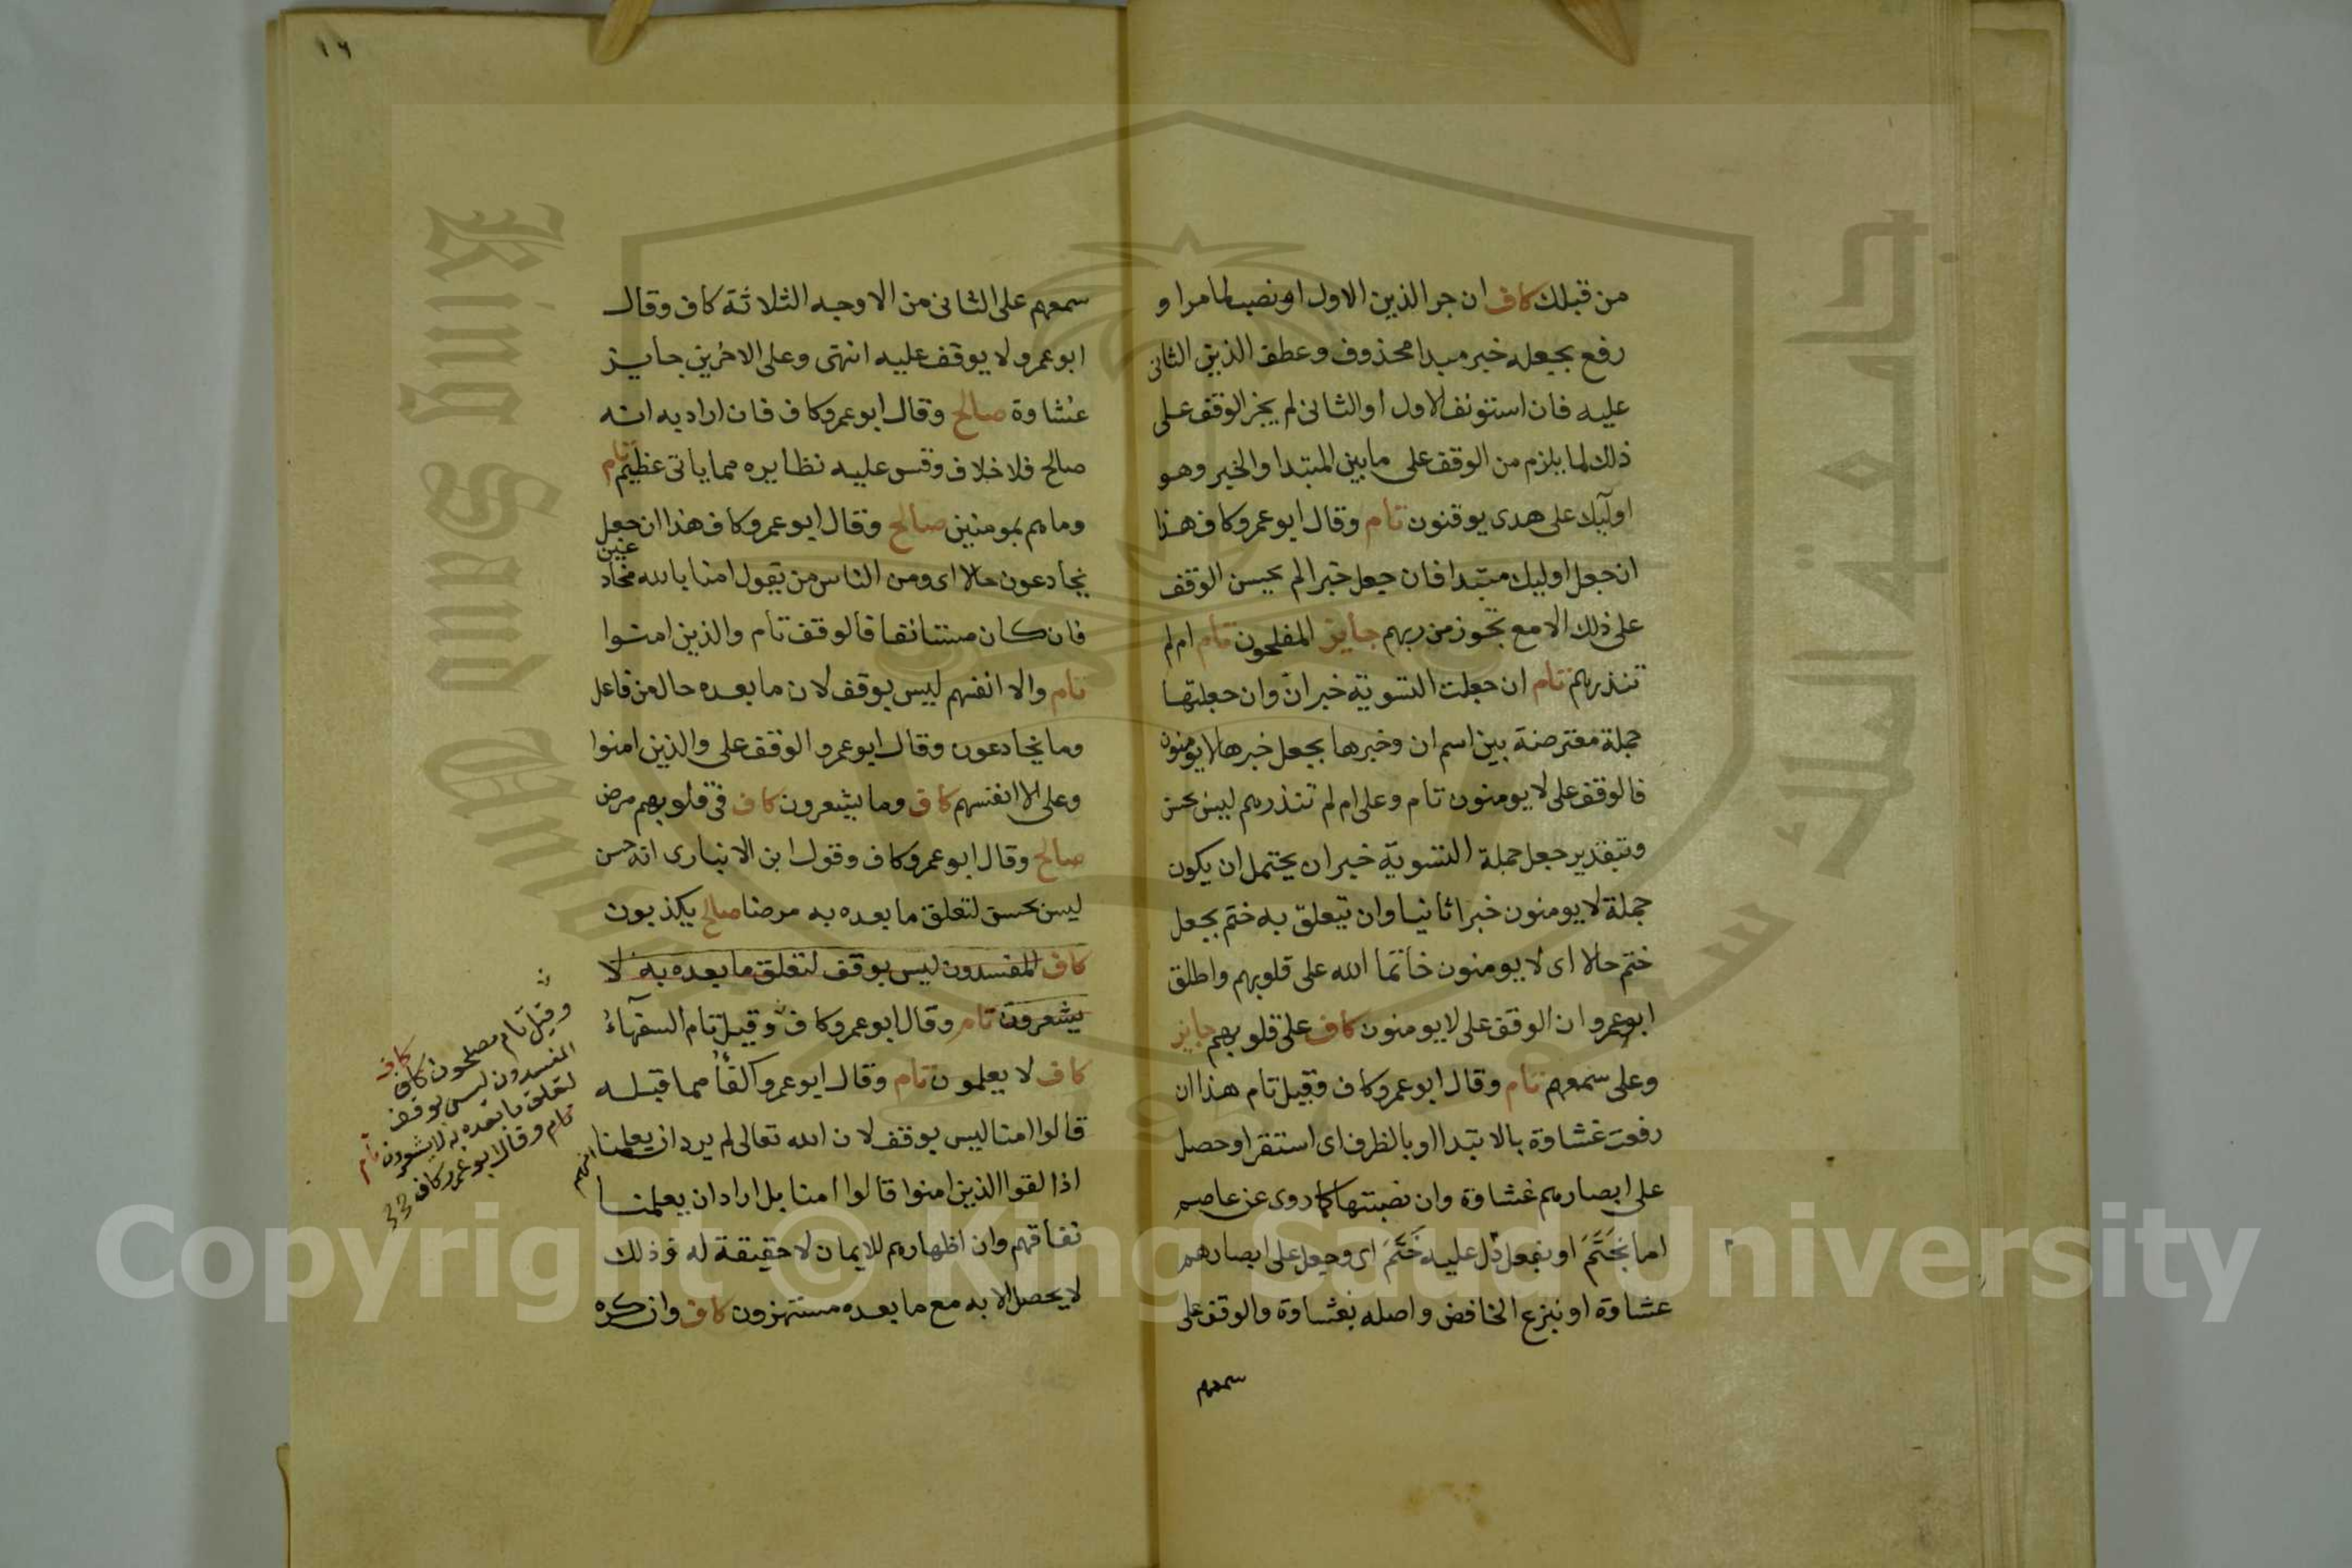 من قبلك كاف ان جر الذين الاول او نصب لما مر او
رفع بجعله خبر مبدا محذوف وعطف الذين الثانى
عليه فان استونف الاول او الثانى لم يجز الوقف على
ذلك لما يلزم من الوقف على ما بين المبتدا والخبر وهو
اوليك على هدى يوقنون تام وقال ابو عمرو كاف هذا
ان جعل اوليك مبتدا فان جعل خبرا لم يحسن الوقف
على ذلك الا مع تجوز من ربهم جايز المفلحون تام ام لم
تنذرهم تام ان جعلت التسوية خبر ان وان جعلتها
جملة معترضة بين اسم ان وخبرها بجعل خبرها لا يومنون
فالوقف على لا يومنون تام وعلى ام لم تنذرهم ليس بحسن
وبتقدير جعل جملة التسوية خبر ان يحتمل ان يكون
جملة لا يومنون خبرا ثانيا وان تتعلق به ختم بجعل
ختم حالا اى لا يومنون خاتما الله على قلوبهم واطلق
ابو عمرو ان الوقف على لا يومنون كاف على قلوبهم جايز
وعلى سمعهم تام وقال ابو عمرو كاف وقيل تام هذا ان
رفعت غشاوة بالابتدا او بالظرف اى استقر او حصل
على ابصارهم غشاوة وان نصبتها كما روى عن عاصم
اما بخَتَمَ او بفعل دل عليه خَتَمَ اى وجعل على ابصارهم
غشاوة او بنزع الخافض واصله بغشاوة والوقف على
سمعهم
١٦
سمعهم على الثانى من الاوجه الثلاثة كاف وقال
ابو عمرو لا يوقف عليه انتهى وعلى الاخرين جايز
غشاوة صالح وقال ابو عمرو كاف فان اراد به انه
صالح فلا خلاف وقس عليه نظايره مما ياتى عظيم تام
وما هم بمومنين صالح وقال ابو عمرو كاف هذا ان جعل
يخادعون حالا اى ومن الناس من يقول امنا بالله مخادعين
فان كان مستانفا فالوقف تام والذين امنوا
تام والا انفسهم ليس بوقف لان ما بعده حال من فاعل
وما يخادعون وقال ابو عمرو الوقف على والذين امنوا
وعلى الا انفسهم كاف وما يشعرون كاف فى قلوبهم مرض
صالح وقال ابو عمرو كاف وقول ابن الانبارى انه حسن
ليس بحسن لتعلق ما بعده به مرضا صالح يكذبون
كاف المفسدون ليس بوقف لتعلق ما بعده به لا
يشعرون تام وقال ابو عمرو كاف وقيل تام السفهاءُ
كاف لا يعلمون تام وقال ابو عمرو اكفأ مما قبله
قالوا امنا ليس بوقف لان الله تعالى لم يرد ان يعلمنا انهم
اذا لقوا الذين امنوا قالوا امنا بل اراد ان يعلمنا
نفاقهم وان اظهارهم للايمان لا حقيقة له وذلك
لا يحصل الا به مع ما بعده مستهزون كاف وان كره
وقيل تام مصلحون كاف كاف
المفسدون ليس بوقف
لتعلق ما بعده به لا يشعرون تام
تام وقال ابو عمرو كاف
King Saud University
جامعة الملك سعود
Copyright © King Saud University